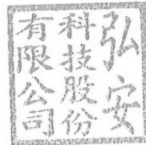 弘安
科技股份
有限公司